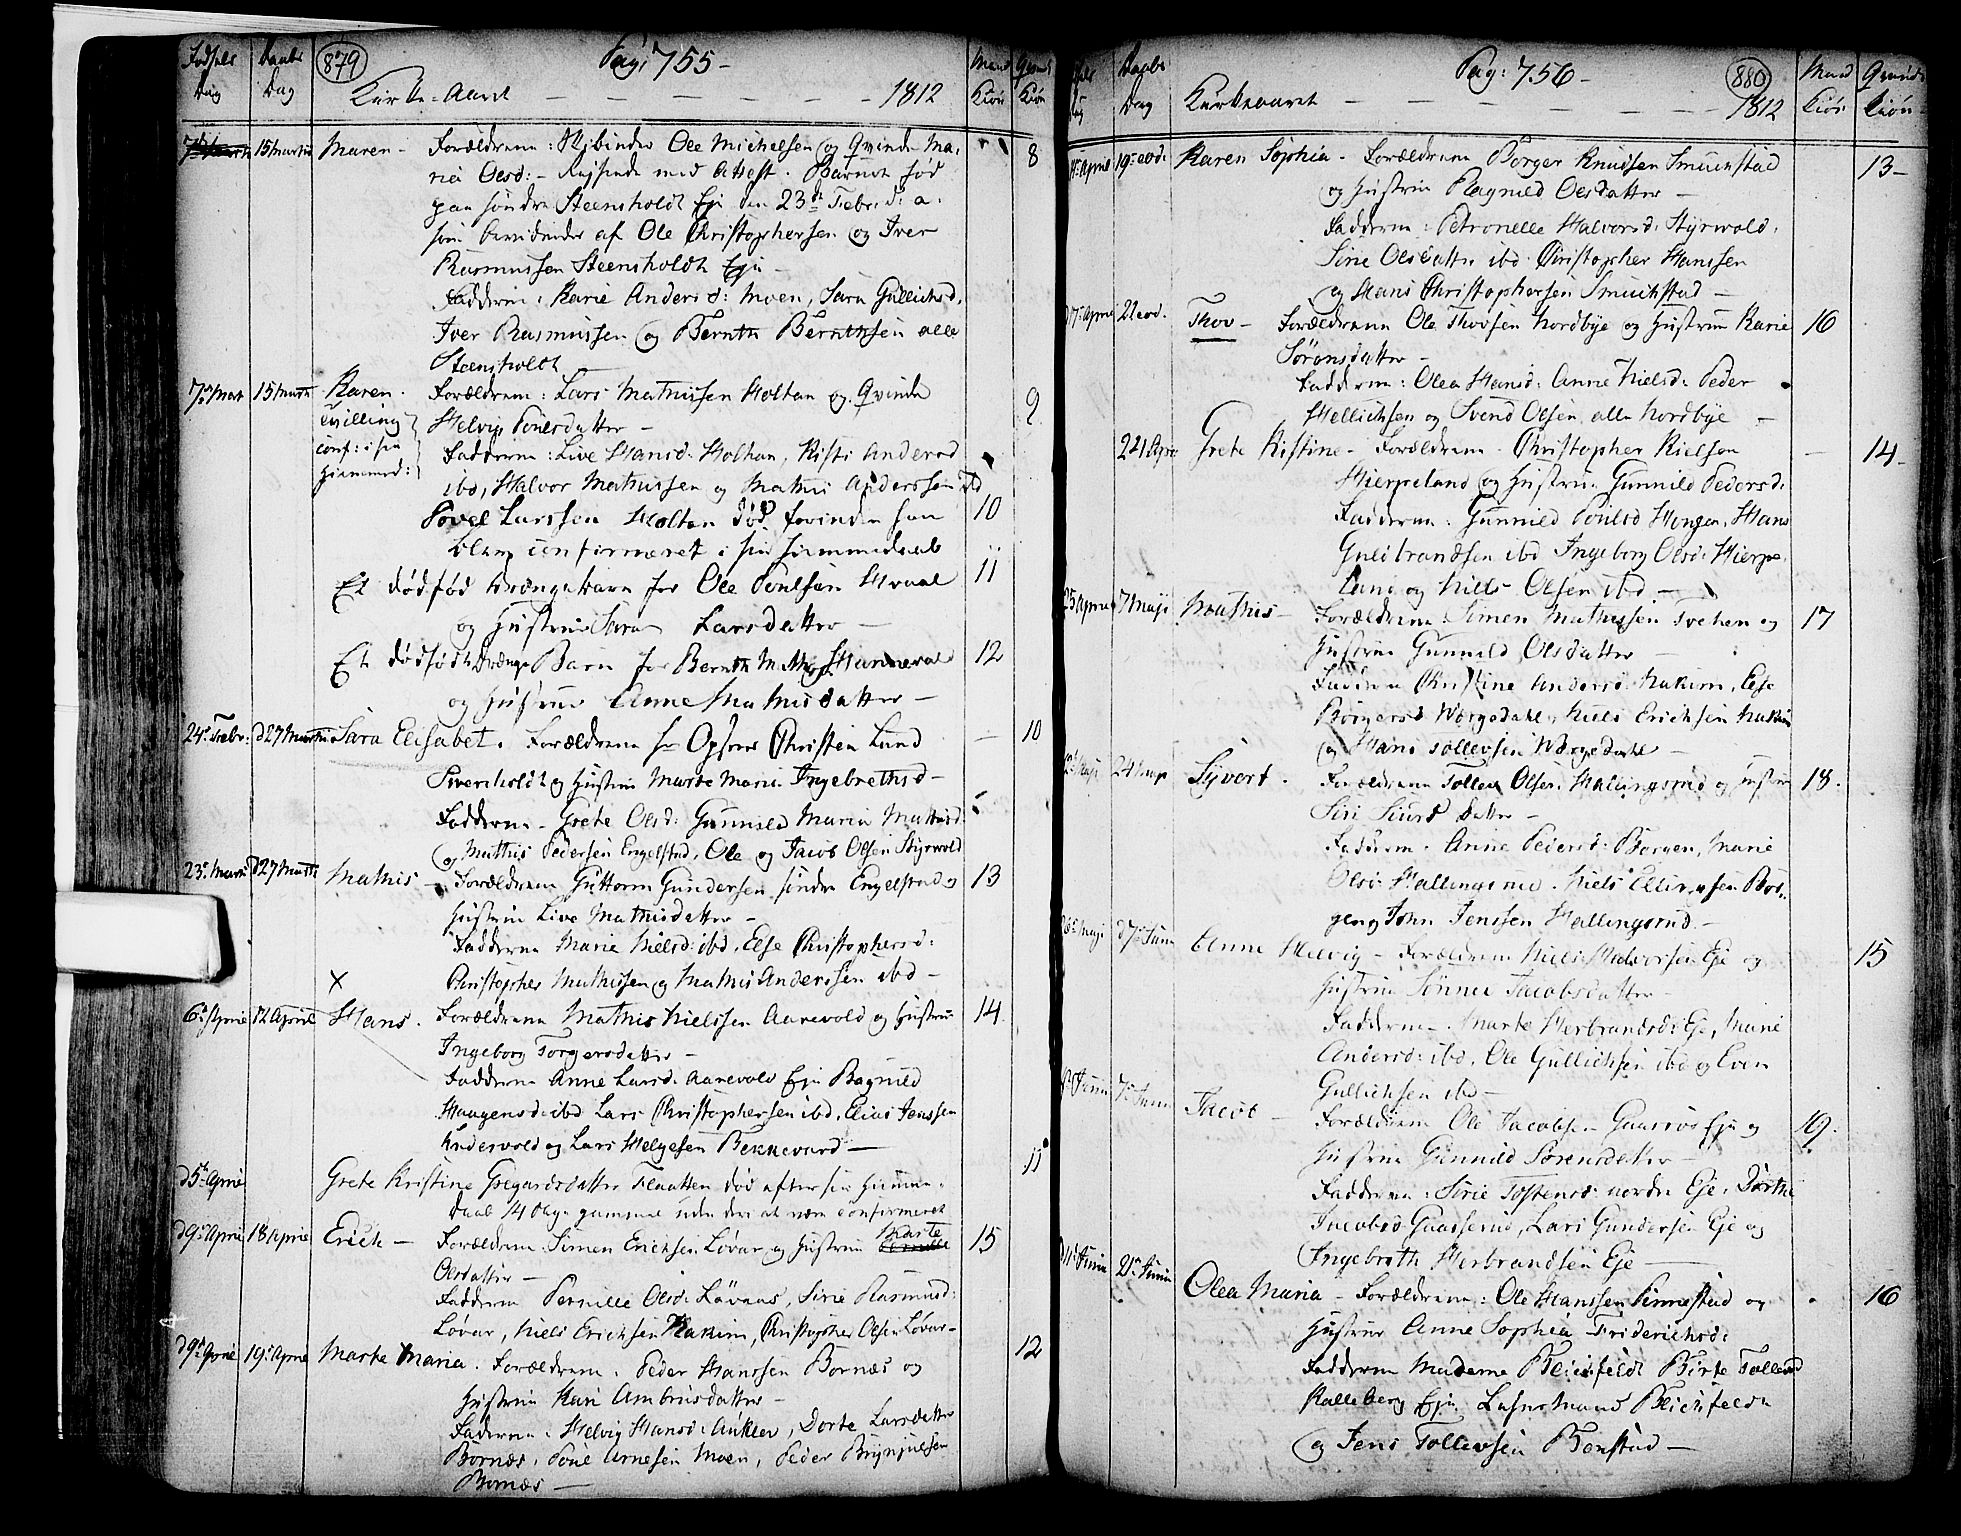 Fødsels Daabs (879) Pag: 755 - Mand Qvinde
Dag Dag Kirke-Aaret - - - - - - - 1812 Kiøn Kiøn
7de Martii 15 Martii Maren - Forældrene: Skibinder Ole Michelsen og Qvinde Ma- 8
ria Olsd: - Reisende med Attest. Barnet fød
paa søndre Steensholdt Eje den 23de Febr: d: a:
som bevidnedes af Ole Christophersen og Iver
Rasmussen Steensholdt Eje -
Fadderne: Karie Andersd: Moen, Sara Gullichsd:
Iver Rasmussen og Bernth Bernthsen alle
Steensholdt
7de Mart 15 Marti Karen. Forældrene: Lars Mathissen Holtan og Qvinde 9
tvilling Helvig Povelsdatter -
conf: i sin Fadderne: Live Hansd: Holtan, Kisti Andersd
hiemmed: ibd, Halvor Mathissen og Mathis Anderssen ibd
Povel Larssen Holtan død forinden han 10
blev confirmeret i sin hiemmedaab
Et dødfød drængebarn for Ole Poulsen Hvaal 11
og Hustrue Sara Larsdatter -
Et dødfødt Drænge Barn for Bernth Math: Hannevold 12
og Hustrue Anne Mathisdatter -
24de Febr: d 27 Martii Sara Elisabet. Forældrene hr Opsyns Christen Lund - 10
Sverstholdt og Hustrue Marte Maria Ingebrethsd -
Fadderne - Grete Olsd: Gunnild Maria Mathisd:
og Mathis Pedersen Engelstad, Ole og Jacob Olsen Styrvold
23de Martii d 27 Martii Mathis - Forældrene Guttorm Gundersen søndre Engelstad og 13
Hustrue Live Mathisdatter -
Fadderne Marie Nielsd: ibd, Else Christophersd:
X Christopher Mathissen og Mathis Anderssen ibd -
6de April 12 April Hans. Forældrene Mathis Nielssen Aarevold og Hustrue 14
Ingeborg Torgersdatter -
Fadderne Anne Larsd: Aarevold Eje Ragnild
Haagensd: ibd Lars Christophersen ibd, Elias Jenssen
Undersvold og Lars Helgesen Bekkevard -
d 5te April Grete Kristine Gregardsdatter Flaatten død efter sin hiemme- 11
daab 14 dage gammel uden der at være confirmeret
d 9de April 18 April Erich - Forældrene: Simen Erichsen Løvar og Hustrue Marte 15
Olsdatter -
Fadderne Pernille Olsd: Løvaas, Sirie Rasmusd:
Løvar, Niels Erichsen Hakim, Christopher Olsen Løvar -
d 9de April 19de April Marte Maria. Forældrene. Peder Hanssen Bornæs og 12
Hustrue Kari Ambrusdatter -
Fadderne: Helvig Hansd: Anklev, Dorte Larsdatter
Bornæs, Poul Arnesen Moen, Peder Brynjulsen
Bornæs -
Daabs Pag: 756 - (880) Mand Qvinde
Dag Kirkeaaret - - - - - 1812 Kiøn Kiøn
April 19de eod: Karen Sophia - Forældrene Børger Knudsen Smuchstad 13 -
og Hustrue Ragnild Olsdatter -
Fadderne: Petronelle Halvorsd: Styrvold,
Sirie Olsdatter ibd. Christopher Hanssen
og Hans Christophersen Smuchstad -
d 17de April 22 eod. Thov - Forældrene Ole Thovsen Nordbye og Hustrue Karie 16
Sørensdatter -
Fadderne: Olea Hansd: Anne Nielsd: Peder
Hellichsen og Svend Olsen alle Nordbye -
22 April Grete Kistine - Forældrene - Christopher Nielsen - 14 -
Hierpeland og Hustrue Gunnild Pedersd:
Fadderne: Gunnild Povelsd Hengen, Hans
Guldbrandsen ibd Ingeborg Olsd: Hierpe-
land og Niels Olsen ibd -
25 April 7 Maji Mathis - Forældrene Simen Mathissen Tvehen og 17
Hustrue Gunnild Olsdatter -
Fadderne Christine Andersd: Hakim, Else
Børgersd Worgedahl, Niels Erichsen Hakim
og Hans Tollevsen Worgedahl -
Maji 24 Maji Syvert. Forældrene Tollev Olsen Hallingsrud og Hustrue 18.
Siri Siursdatter -
Fadderne. Anne Pedersd: Borgen, Marie
Olsd: Hallingsrud. Niels Ellingsen Bor-
gen og John Jenssen Hallingsrud -
Maji d 7de Junii Anne Helvig - Forældrene Niels Halvorsen Eje og 15
Hustrue Sønnev Jacobsdatter -
Fadderne - Marte Herbrandsd: Eje, Marie
Andersd: ibd, Ole Gullichsen ibd og Even
Gullichsen ibd -
Junii 7de Junii Jacob - Forældrene Ole Jacobsen Gaasrud Eje og 19.
Hustrue Gunnild Sørensdatter -
Fadderne: Sirie Tostensd: nordre Eje, Dorthe
Jacobsd: Gaasserud, Lars Gundersen Eje og
Ingebreth Herbrandsen Eje -
d 11te Junii 21de Junii Olea Maria - Forældrene: Ole Hanssen Linnestad og 16
Hustrue Anne Sophia Friderichsd:
Fadderne Madame Bleichfeldt Birte Tollevsd
Kalleberg Eje Lehnsmand Bleichfeldt
og Jens Tollevsen Benstad -